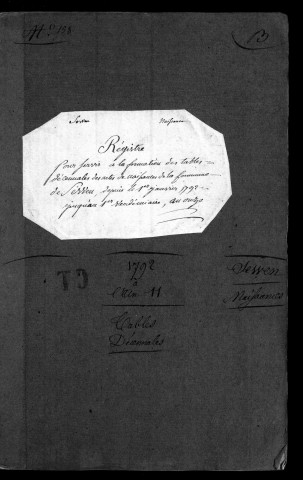 B
Naissances
Régistre
Pour servir à la formation des tables
décennales des actes de naissances de la Commune
de Serven depuis le 1er janvier 1792
jusqu'au 1er Vendémiaire, an onze
1792
à
l'An 11
Tables
Décennales
CT
Serven
Naissances